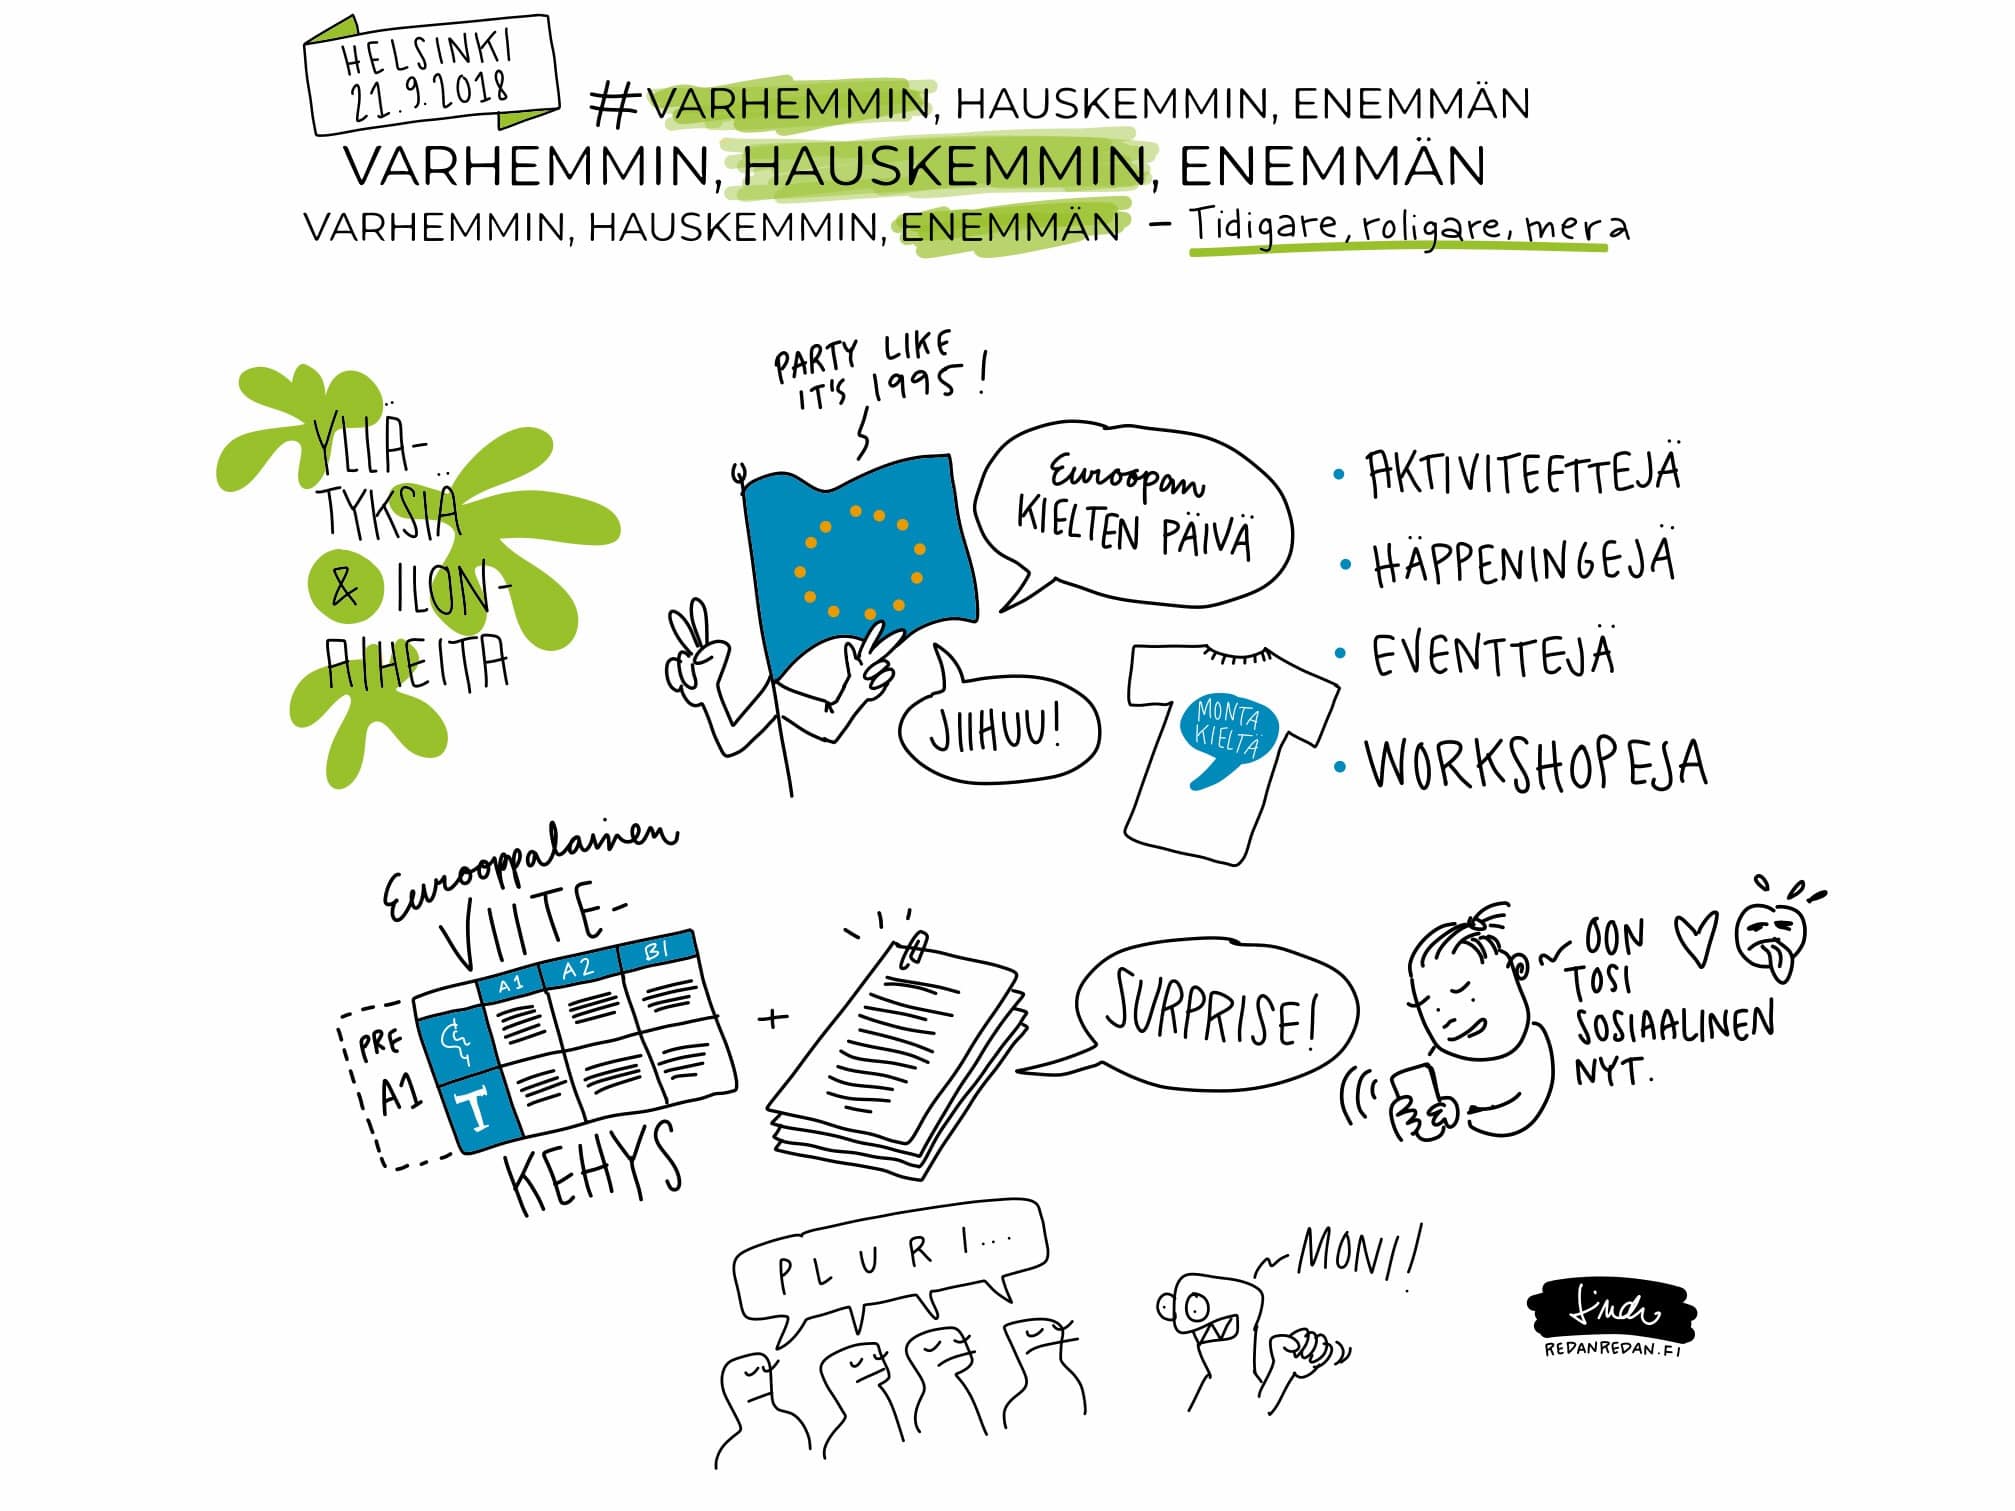 HELSINKI
21.9.2018
#VARHEMMIN, HAUSKEMMIN, ENEMMÄN
VARHEMMIN, HAUSKEMMIN, ENEMMÄN
VARHEMMIN, HAUSKEMMIN, ENEMMÄN – Tidigare, roligare, mera
YLLÄ-
TYKSIÄ
& ILON-
AIHEITA
PARTY LIKE
IT'S 1995!
Euroopan
KIELTEN PÄIVÄ
JIIHUU!
MONTA
KIELTÄ
• AKTIVITEETTEJÄ
• HÄPPENINGEJÄ
• EVENTTEJÄ
• WORKSHOPEJA
Eurooppalainen
VIITE-
A1 A2 B1
PRE
A1
T
KEHYS
+
SURPRISE!
OON
TOSI
SOSIAALINEN
NYT.
PLURI...
MONI!
REDANREDAN.FI